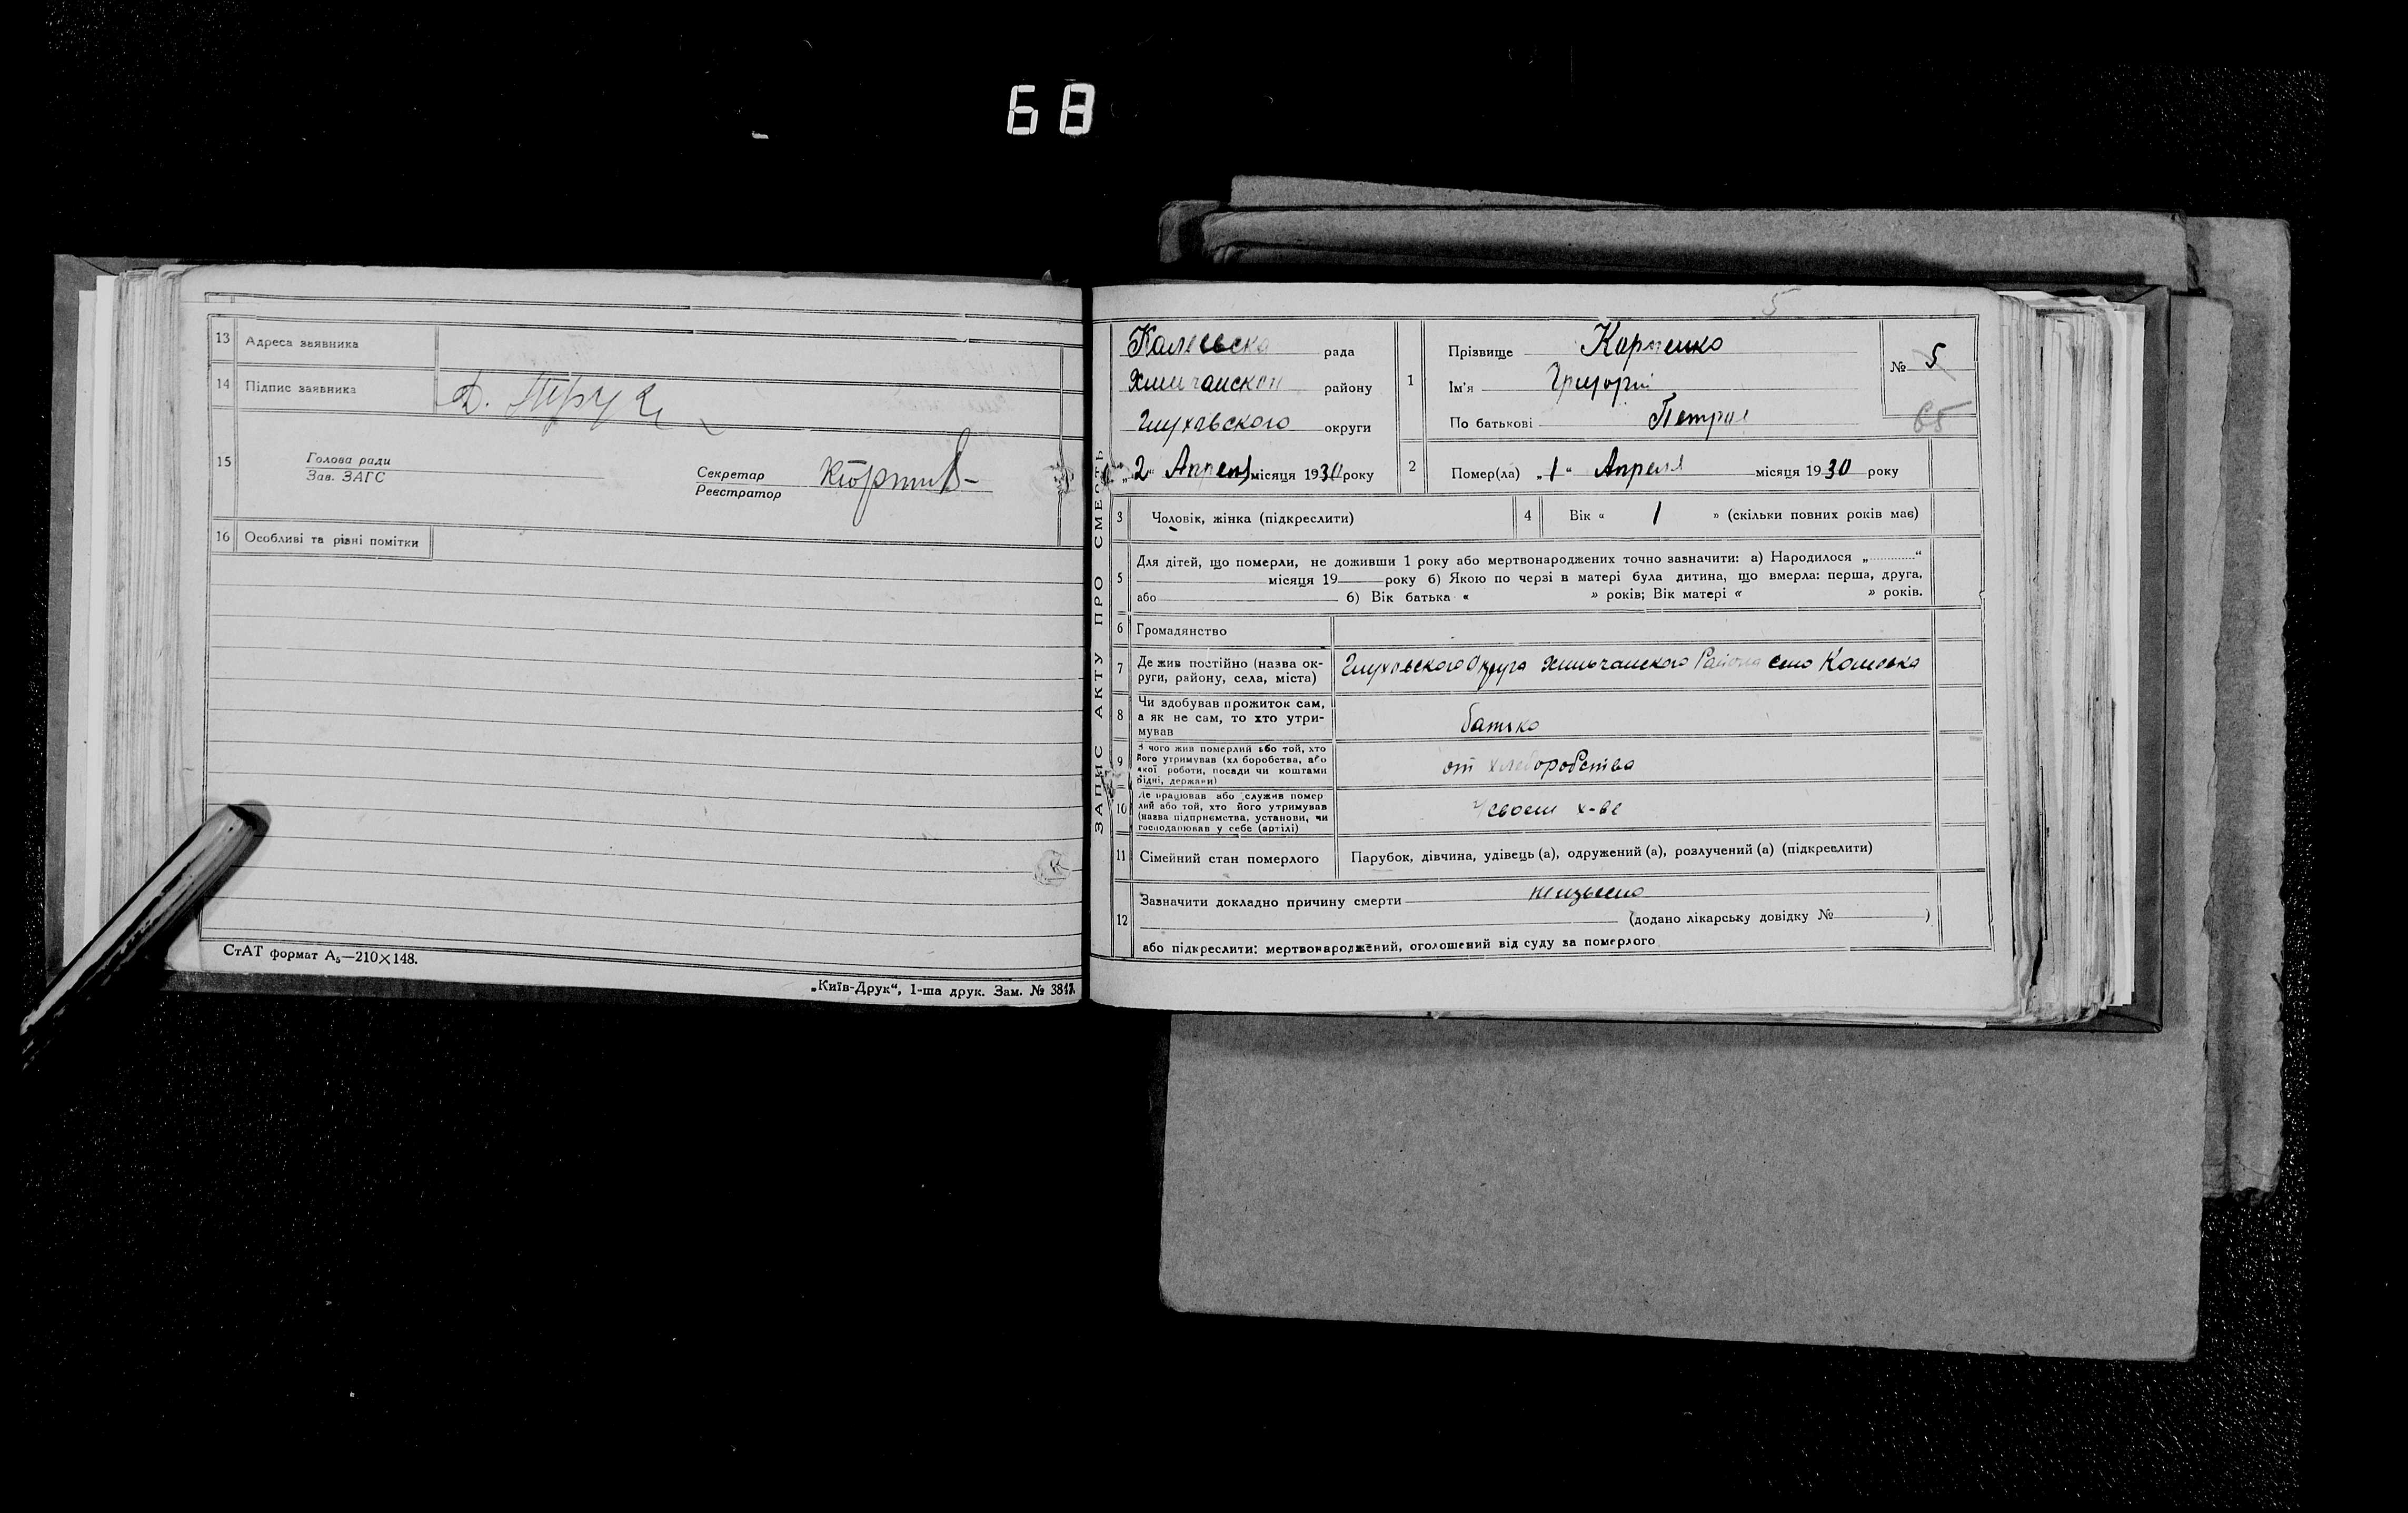 68
13 Адреса заявника
14 Підпис заявника
15 Голова ради
Зав. ЗАГС
Секретар
Реєстратор
16 Особливі та різні помітки
СтАТ формат А5—210×148.
„Київ-Друк“, 1-ша друк. Зам. № 3817.
5
ЗАПИС АКТУ ПРО СМЕРТЬ
рада
району
Глуховского округи
„2“ Апреля місяця 1930 року
1 Прізвище Карпенко
Ім'я Григорий
По батькові Петров
№ 5
65
2 Помер(ла) „1“ Апреля місяця 1930 року
3 Чоловік, жінка (підкреслити)
4 Вік « 1 » (скільки повних років має)
5 Для дітей, що померли, не доживши 1 року або мертвонароджених точно зазначити: а) Народилося „ “
місяця 19 року б) Якою по черзі в матері була дитина, що вмерла: перша, друга,
або б) Вік батька « » років; Вік матері « » років.
6 Громадянство
7 Де жив постійно (назва ок-
руги, району, села, міста)
Глуховского Округа Района село
8 Чи здобував прожиток сам,
а як не сам, то хто утри-
мував
батько
9 З чого жив померлий або той, хто
його утримував (хліборобства, або
якої роботи, посади чи коштами
рідні, держави)
от хлеборобства
10 Де працював або служив помер
лий або той, хто його утримував
(назва підприємства, установи, чи
господарював у себе (артілі)
у своем х-ве
11 Сімейний стан померлого
Парубок, дівчина, удівець (а), одружений (а), розлучений (а) (підкреслити)
12 Зазначити докладно причину смерти
(додано лікарську довідку № )
або підкреслити: мертвонароджений, оголошений від суду за померлого